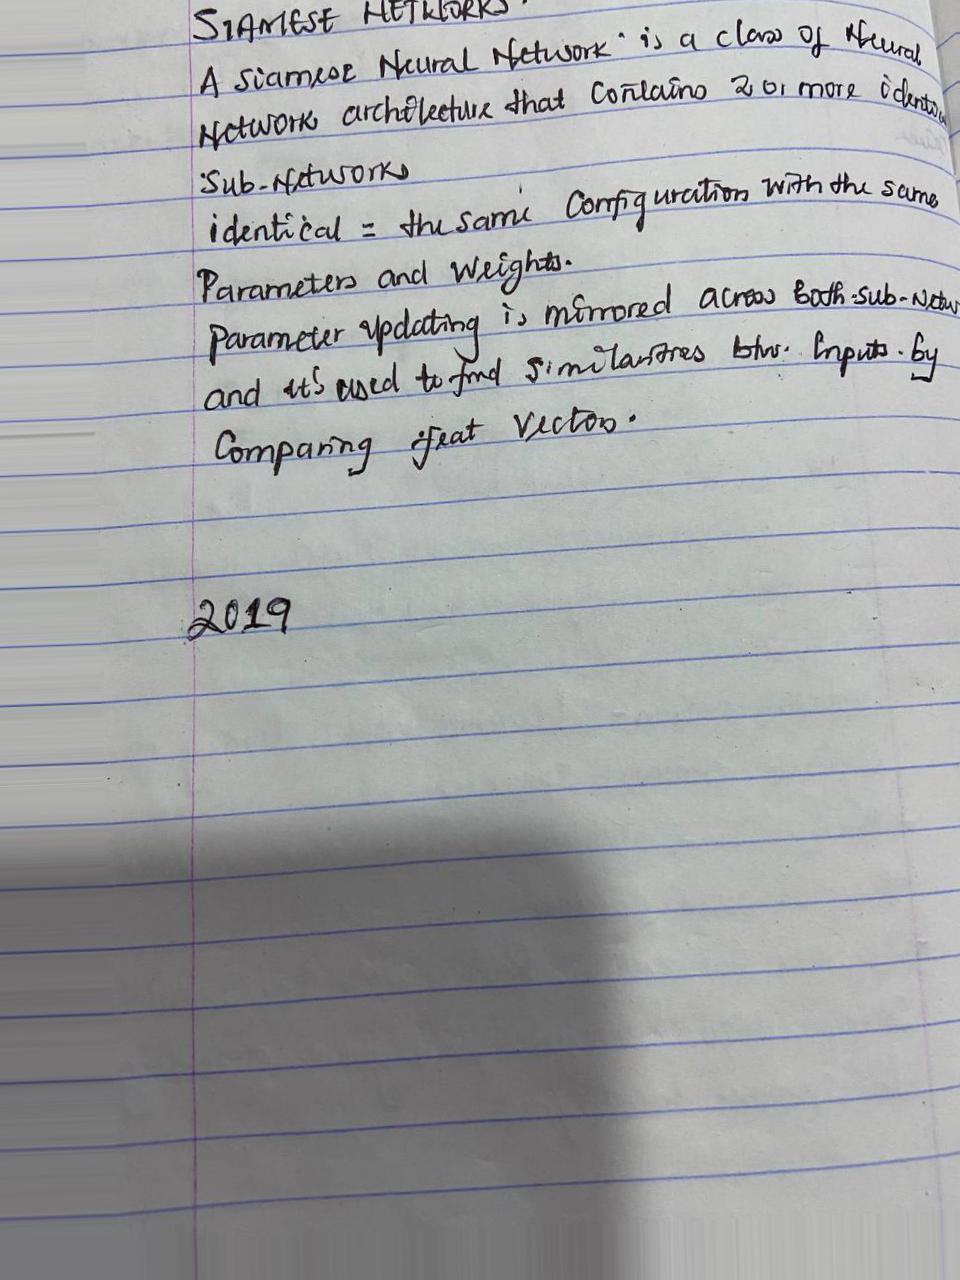 SIAMESE NETWORKS.
A siamese Neural Network is a class of Neural
Network architecture that contains 2 or more identi
Sub-Networks
identical = the same Configuration with the same
Parameters and weights.
Parameter updating is mirrored across both sub-Netw
and it's used to find similarities btw. Inputs. by
Comparing feat vectors.
2019